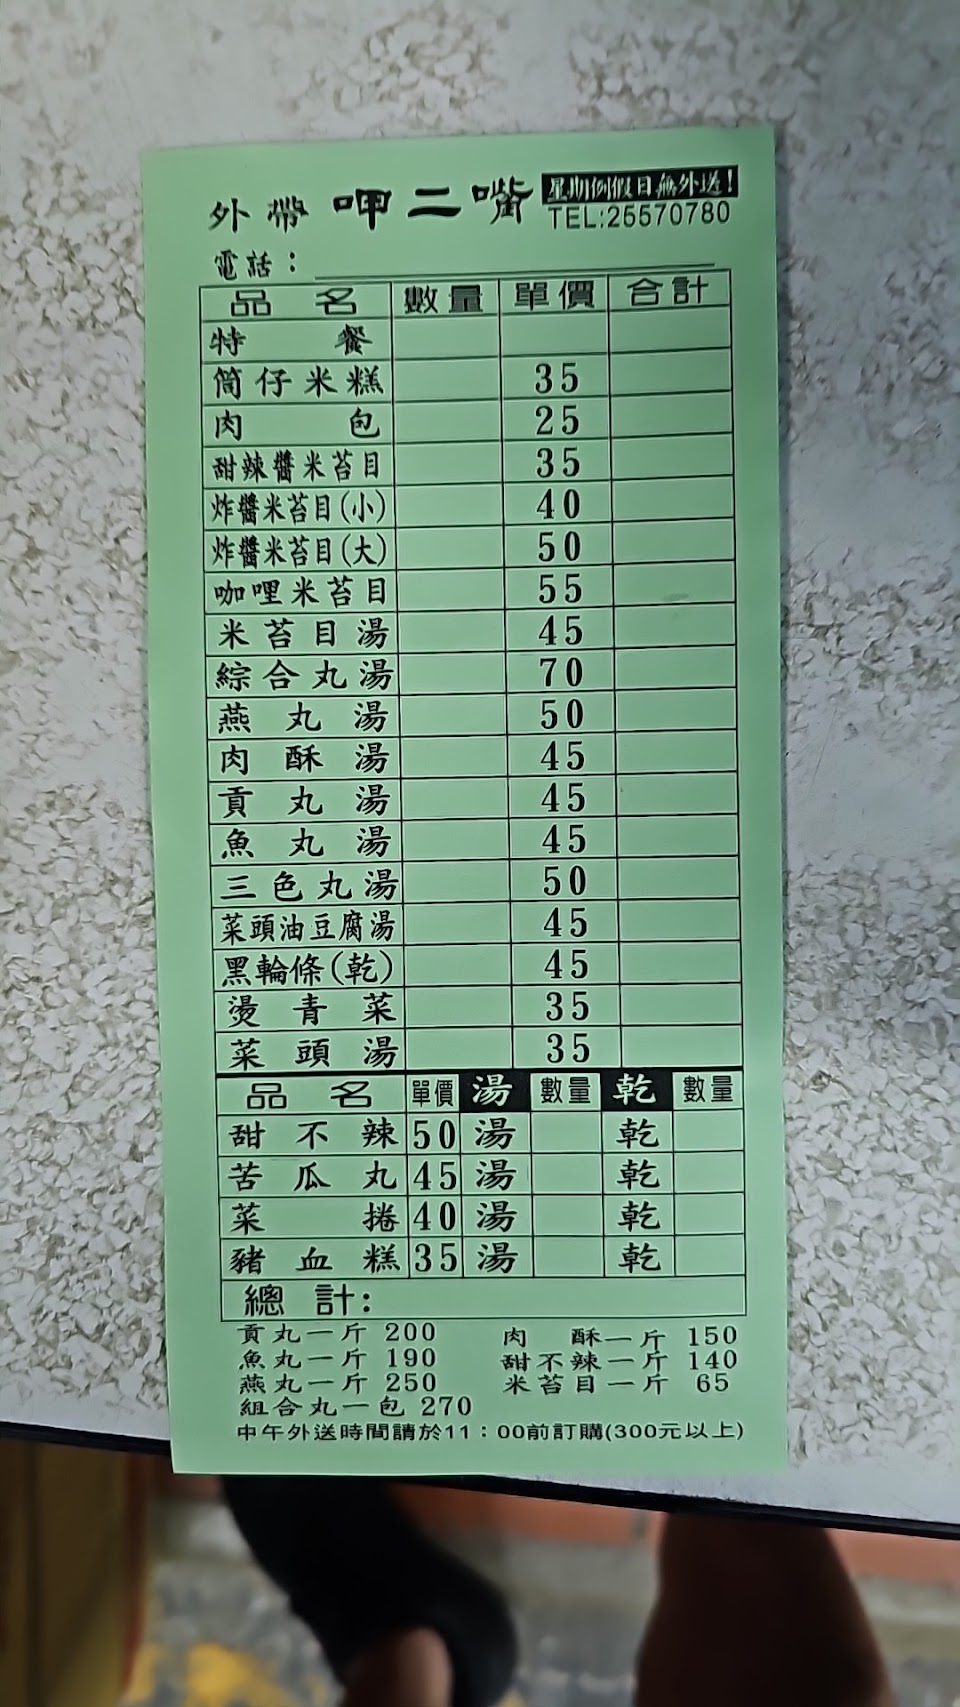 外帶 呷二嘴 星期例假日無外送!
TEL:25570780
電話：
品名 數量 單價 合計
特餐
筒仔米糕 35
肉包 25
甜辣醬米苔目 35
炸醬米苔目(小) 40
炸醬米苔目(大) 50
咖哩米苔目 55
米苔目湯 45
綜合丸湯 70
燕丸湯 50
肉酥湯 45
貢丸湯 45
魚丸湯 45
三色丸湯 50
菜頭油豆腐湯 45
黑輪條(乾) 45
燙青菜 35
菜頭湯 35
品名 單價 湯 數量 乾 數量
甜不辣 50 湯 乾
苦瓜丸 45 湯 乾
菜捲 40 湯 乾
豬血糕 35 湯 乾
總計:
貢丸一斤 200 肉酥一斤 150
魚丸一斤 190 甜不辣一斤 140
燕丸一斤 250 米苔目一斤 65
組合丸一包 270
中午外送時間請於11：00前訂購(300元以上)